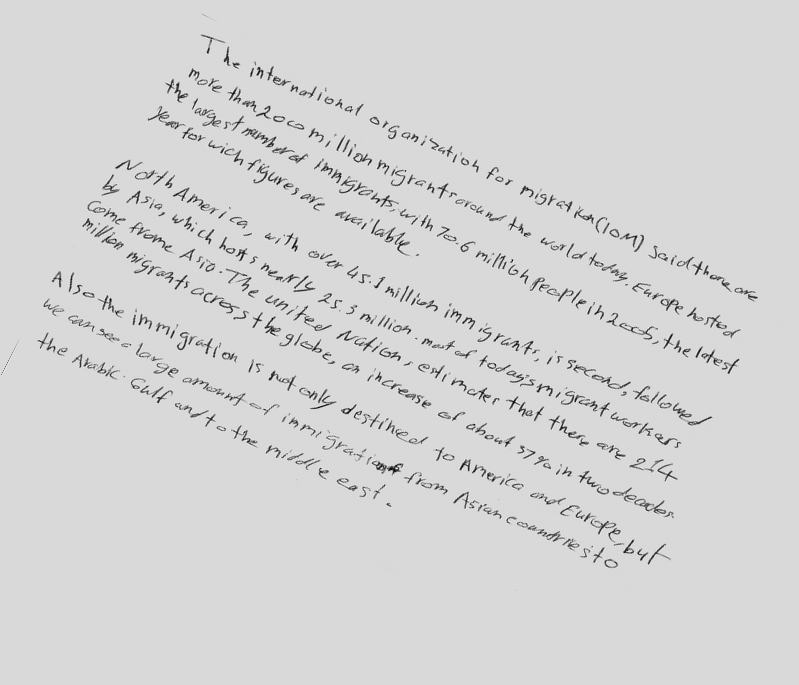 The international organization for migration (IOM) said there are
more than 2000 million migrants around the world today. Europe hosted
the largest number of immigrants, with 70.6 million people in 2005, the latest
year for wich figures are available.
North America, with over 45.1 million immigrants, is second, followed
by Asia, which hosts nearly 25.3 million. most of today's migrant workers
come frome Asia. The united Nations estimates that there are 214
million migrants across the globe, an increase of about 37% in two decades.
Also the immigration is not only destined to America and Europe, but
we can see a large amount of immigration from Asian countries to
the Arabic Gulf and to the middle east.